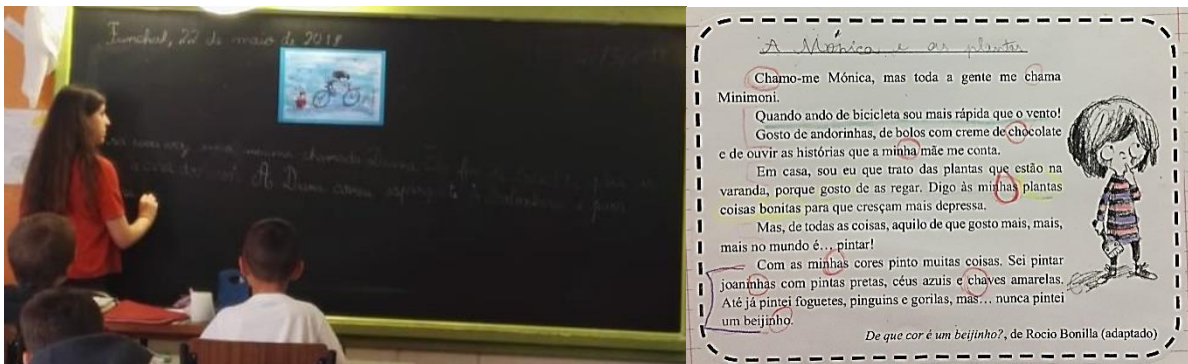 Funchal, 22 de maio de 2018
uma vez uma menina chamada
A
A Mónica e as plantas
Chamo-me Mónica, mas toda a gente me chama
Minimoni.
Quando ando de bicicleta sou mais rápida que o vento!
Gosto de andorinhas, de bolos com creme de chocolate
e de ouvir as histórias que a minha mãe me conta.
Em casa, sou eu que trato das plantas que estão na
varanda, porque gosto de as regar. Digo às minhas plantas
coisas bonitas para que cresçam mais depressa.
Mas, de todas as coisas, aquilo de que gosto mais, mais,
mais no mundo é… pintar!
Com as minhas cores pinto muitas coisas. Sei pintar
joaninhas com pintas pretas, céus azuis e chaves amarelas.
Até já pintei foguetes, pinguins e gorilas, mas… nunca pintei
um beijinho.
De que cor é um beijinho?, de Rocio Bonilla (adaptado)